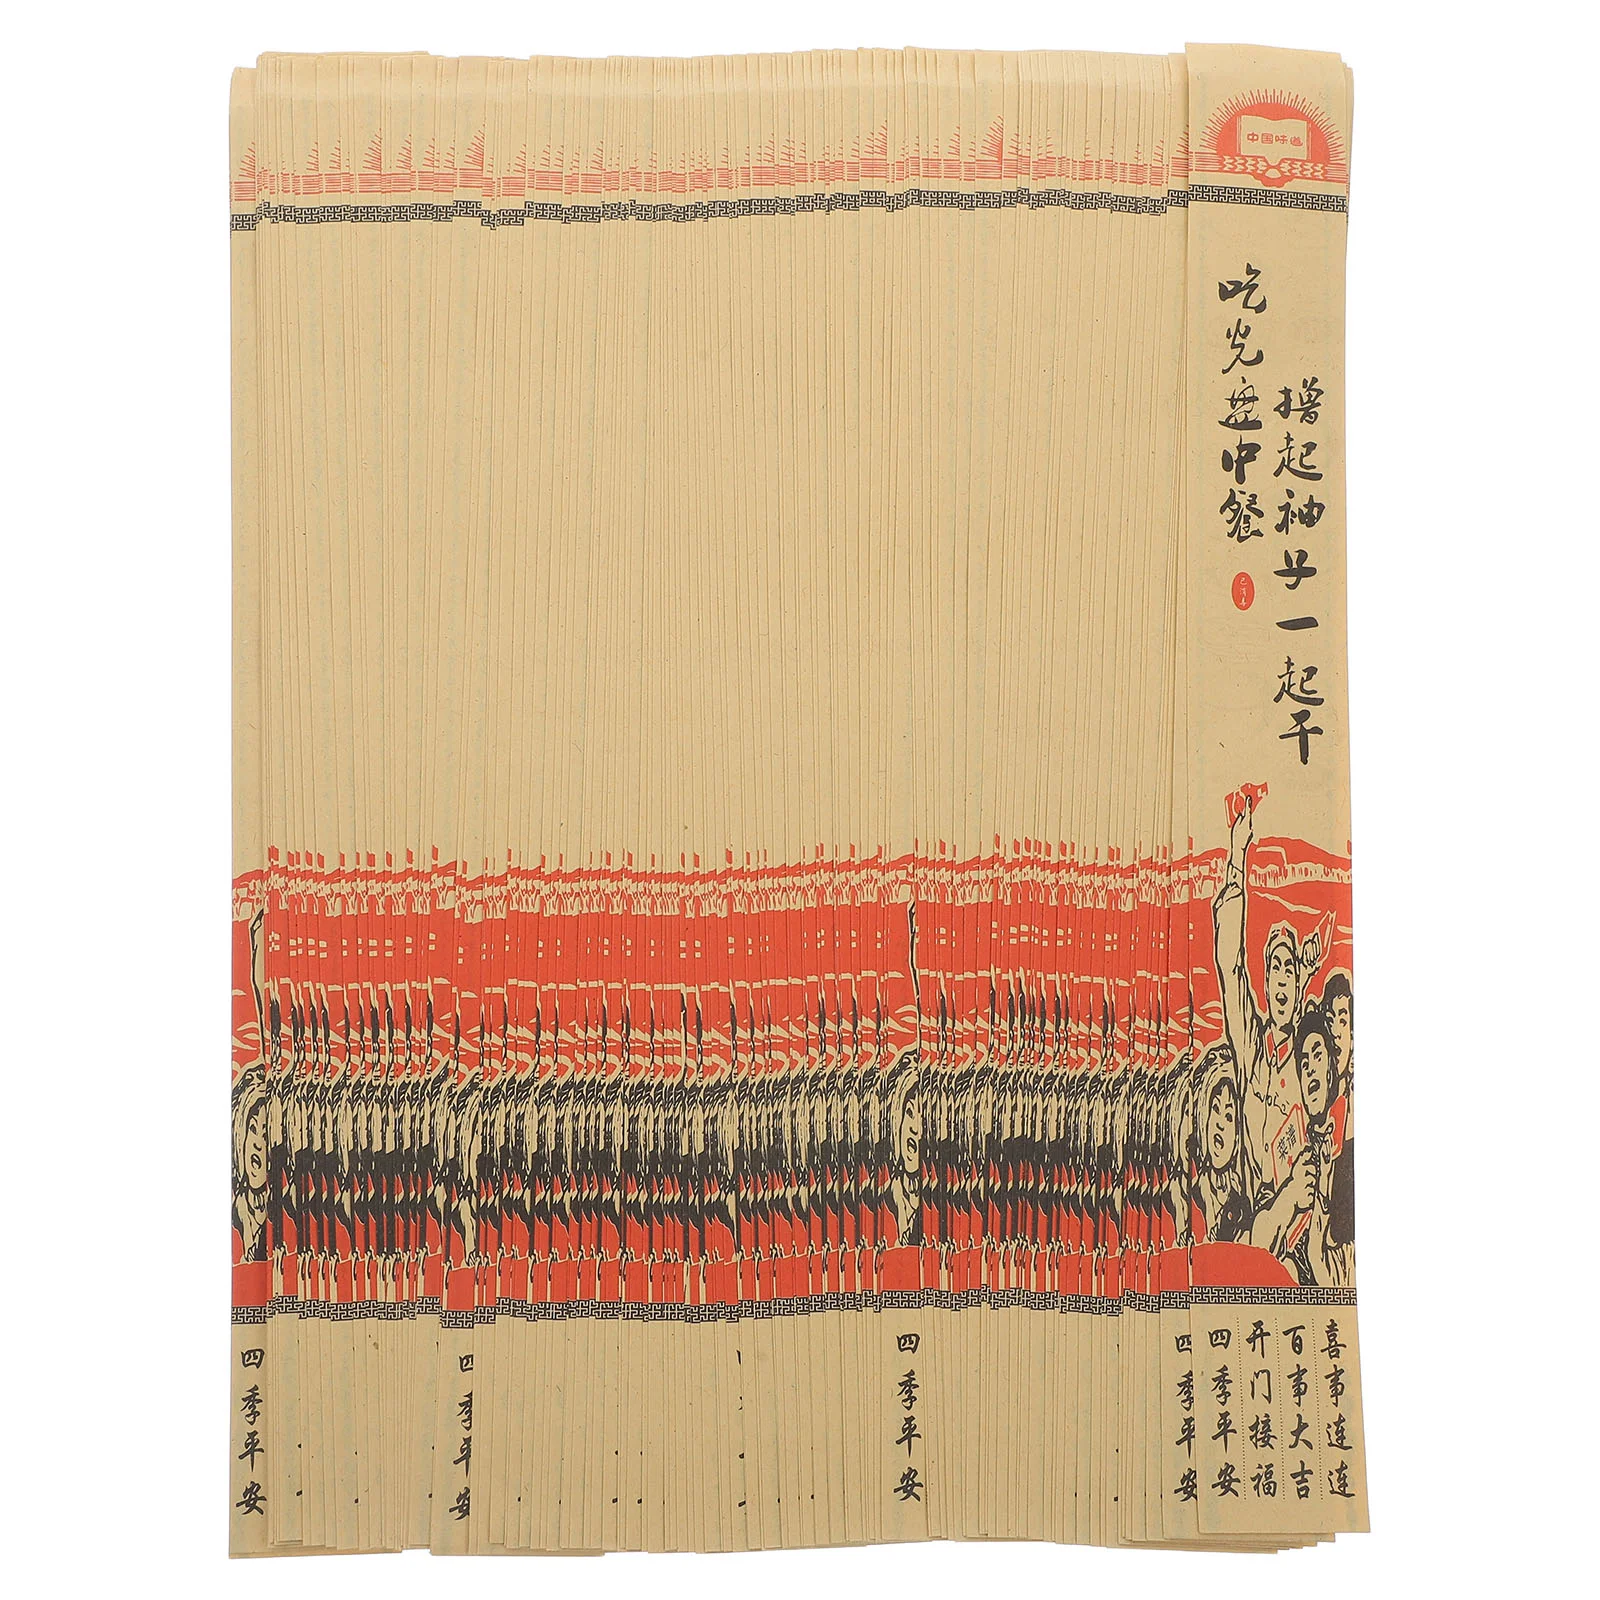 中国味道
撸起袖子一起干
吃光盘中餐
已消毒
菜谱
喜事连连
百事大吉
开门接福
四季平安
四季平安
四季平安
四季平安
四季平安